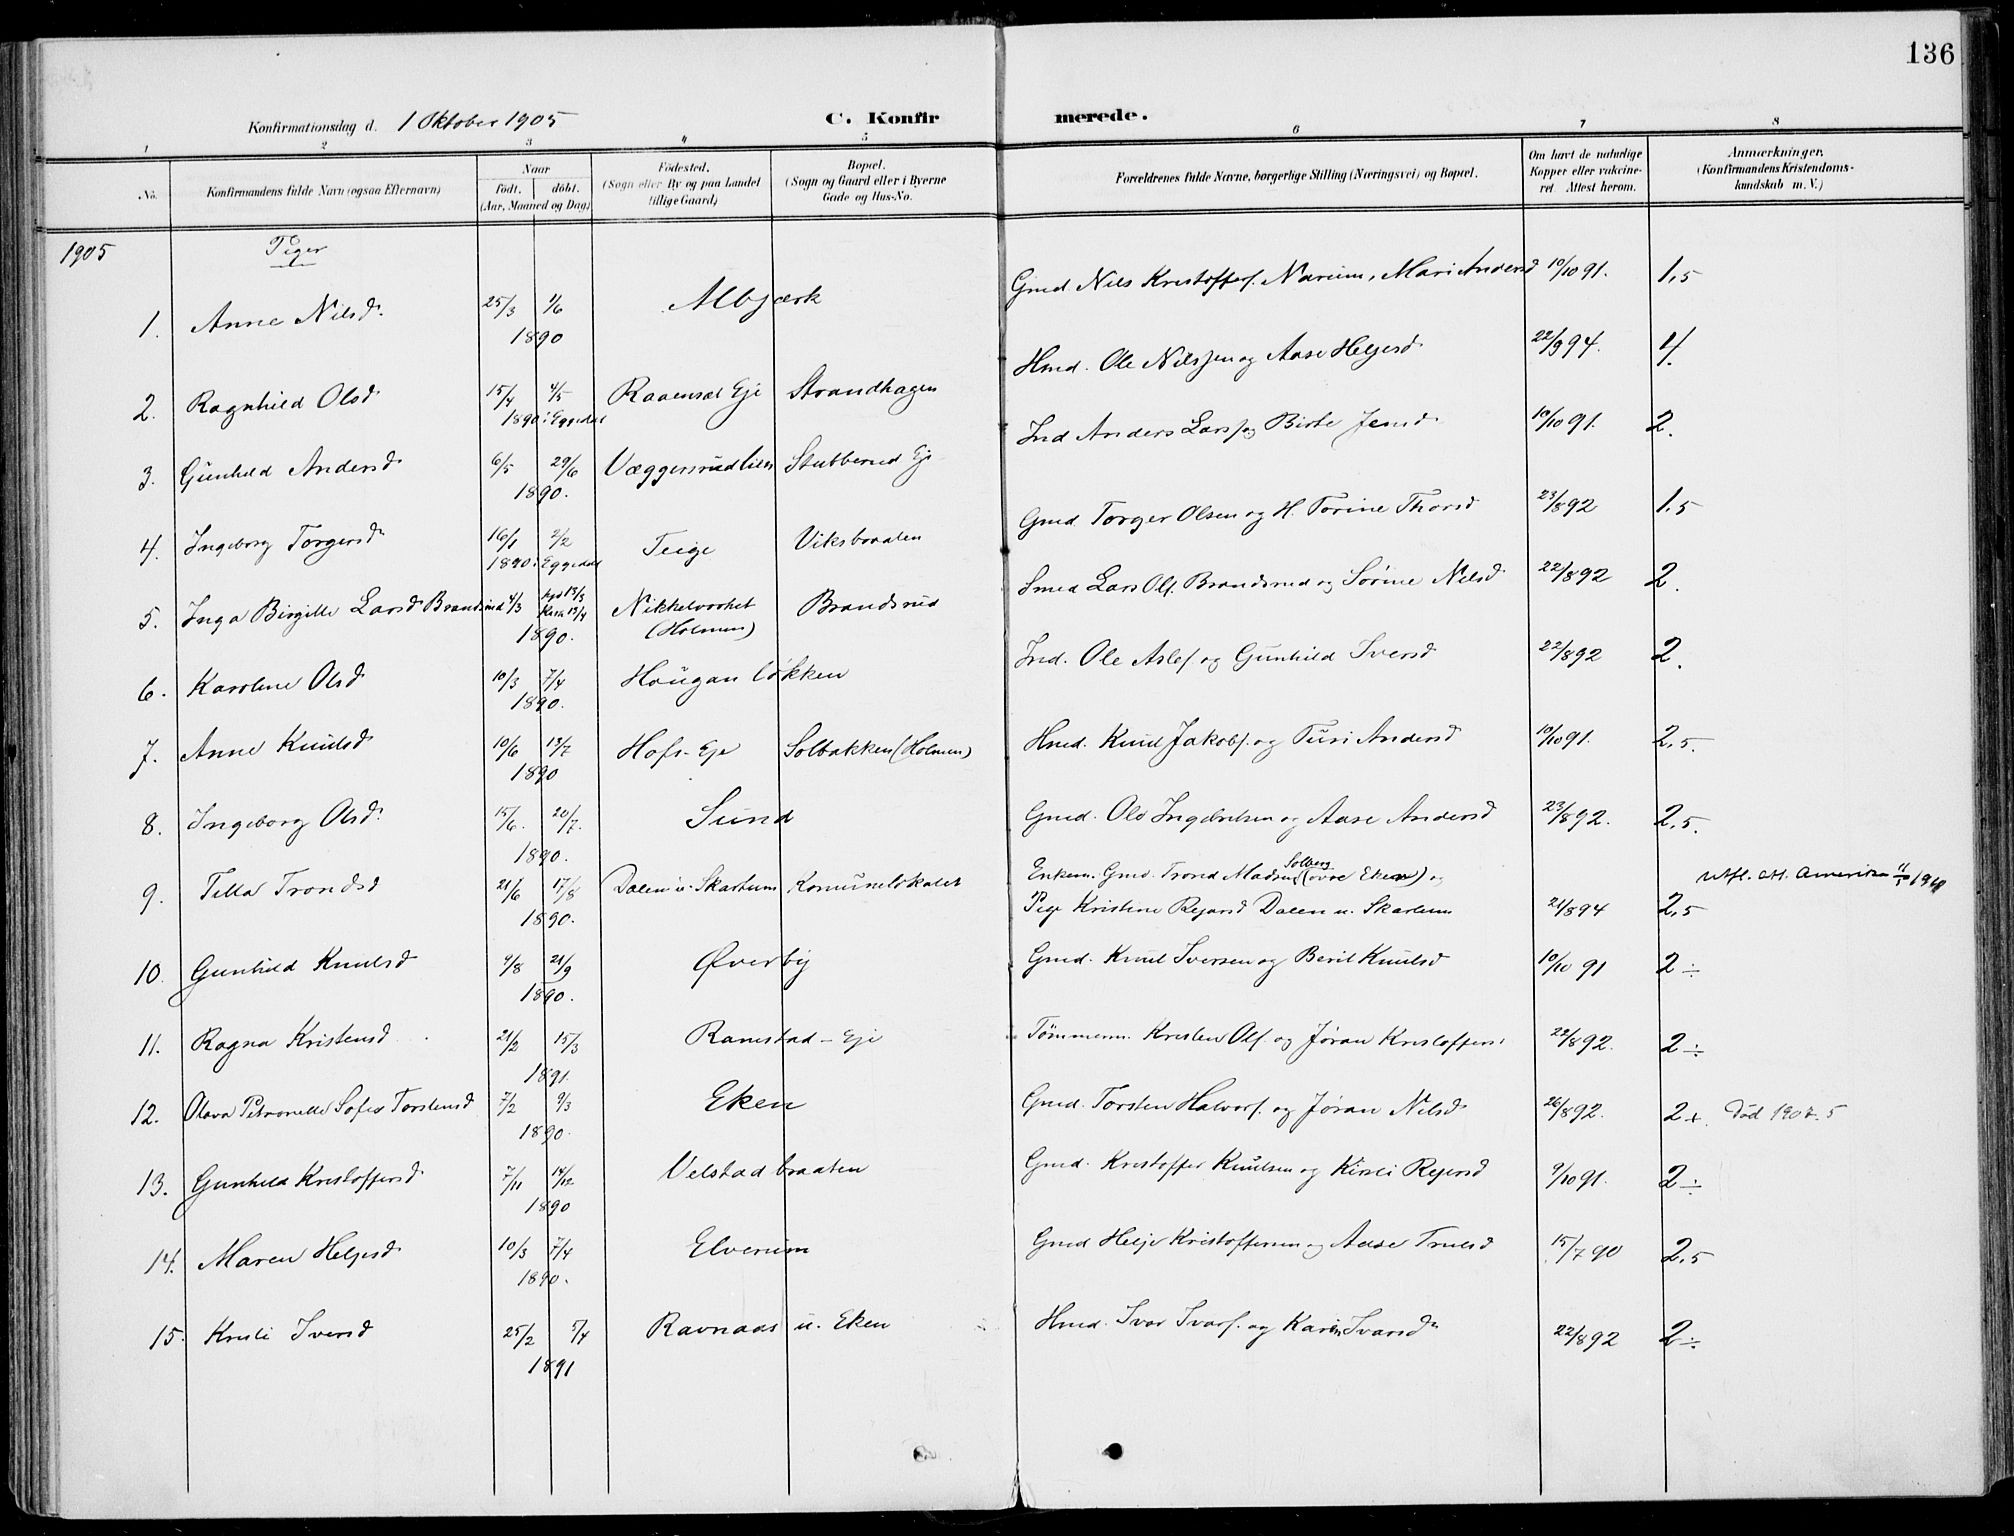 136
Konfirmationsdag d. 1 Oktober 1905
C. Konfirmerede.
1 2 3 4 5 6 7 8
No.
Konfirmandens fulde Navn (ogsaa Efternavn)
Naar
født. døbt.
(Aar, Maaned og Dag)
Fødested.
(Sogn eller By og paa Landet tillige Gaard)
Bopæl.
(Sogn og Gaard eller i Byerne Gade og Hus-No.
Forældrenes fulde Navne, borgerlige Stilling (Næringsvei) og Bopæl.
Om havt de naturlige Kopper eller vakcineret. Attest herom.
Anmærkninger.
(Konfirmandens Kristendomskundskab m. V.)
1905 Piger
1. Anne Nilsd. 25/3 1/6 1890 Albjærk Gmd. Nils Kristoffers. Narum, Mari Andersd 10/10 91. 1,5
2. Ragnhild Olsd 15/4 4/5 1890 i Eggedal Raaensæt Eje Strandhagen Hmd. Ole Nilssen og Aase Helgesd 22/9 94. 4.
3. Gunhild Andersd 6/5 29/6 1890. Væggersrudlien Stubberud Eje Ind Anders Larss. og Birte Jensd. 10/10 91. 2.
4. Ingeborg Torgersd 16/1 2/2 1890 i Eggedal Teige Viksbraaten Gmd. Torger Olsen og H. Torine Thorsd 23/8 92 1,5
5. Inga Birgitte Larsd Brandsrud 4/3 hjd 13/3 Kirk 13/4 1890. Nikkelverket (Holmen) Brandsrud Smed Lars Ols. Brandsrud og Sørine Nilsd. 22/8 92 2.
6. Karoline Olsd 10/3 7/4 1890. Hougan løkken Ind. Ole Aslef. og Gunhild Iversd 22/8 92 2.
7. Anne Knudsd 10/6 13/7 1890 Hofs-Eje Solbakken (Holmen) Hmd. Knud Jakobs. og Turi Andersd 10/10 91. 2,5.
8. Ingeborg Olsd. 15/6. 20/7. 1890. Sund Gmd. Ole Ingebretsen og Aase Andersd 23/8 92. 2,5.
9. Tilla Trondsd 21/6 17/8 1890. Dalen u. Skartum Komunelokalet Enkem. Gmd. Trond Madsen Solberg (øvre Eken) og
Pige Kristine Rejersd Dalen u. Skartum 21/8 94 2,5 Utfl. att. Amerika
10. Gunhild Knudsd 9/8 21/9 1890. Øverby Gmd. Knud Iversen og Berit Knudsd 10/10 91 2÷
11. Ragna Kristensd 21/2 15/3 1891. Ramstad-Eje Tømmerm. Kristen Ols. og Jøran Kristoffersd 22/8 92. 2÷
12. Olava Petronelle Sofie Torstensd 7/2 9/3 1890. Eken Gmd. Torsten Halvors. og Jøran Nilsd. 26/8 92. 2+. Død 1907. 5
13. Gunhild Kristoffersd 7/11 14/12 1890 Velstad braaten Gmd. Kristoffer Knudsen og Kirsti Rejersd 9/10 91. 2÷
14. Maren Helgesd 10/3 7/4 1890. Elverum Gmd Helge Kristoffersen og Aase Trulsd 15/7 90 2,5
15. Kristi Iversd 25/2 5/4 1891 Ravnaas u. Eken Hmd. Ivar Ivars. og Karin Ivarsd 22/8 92 2÷